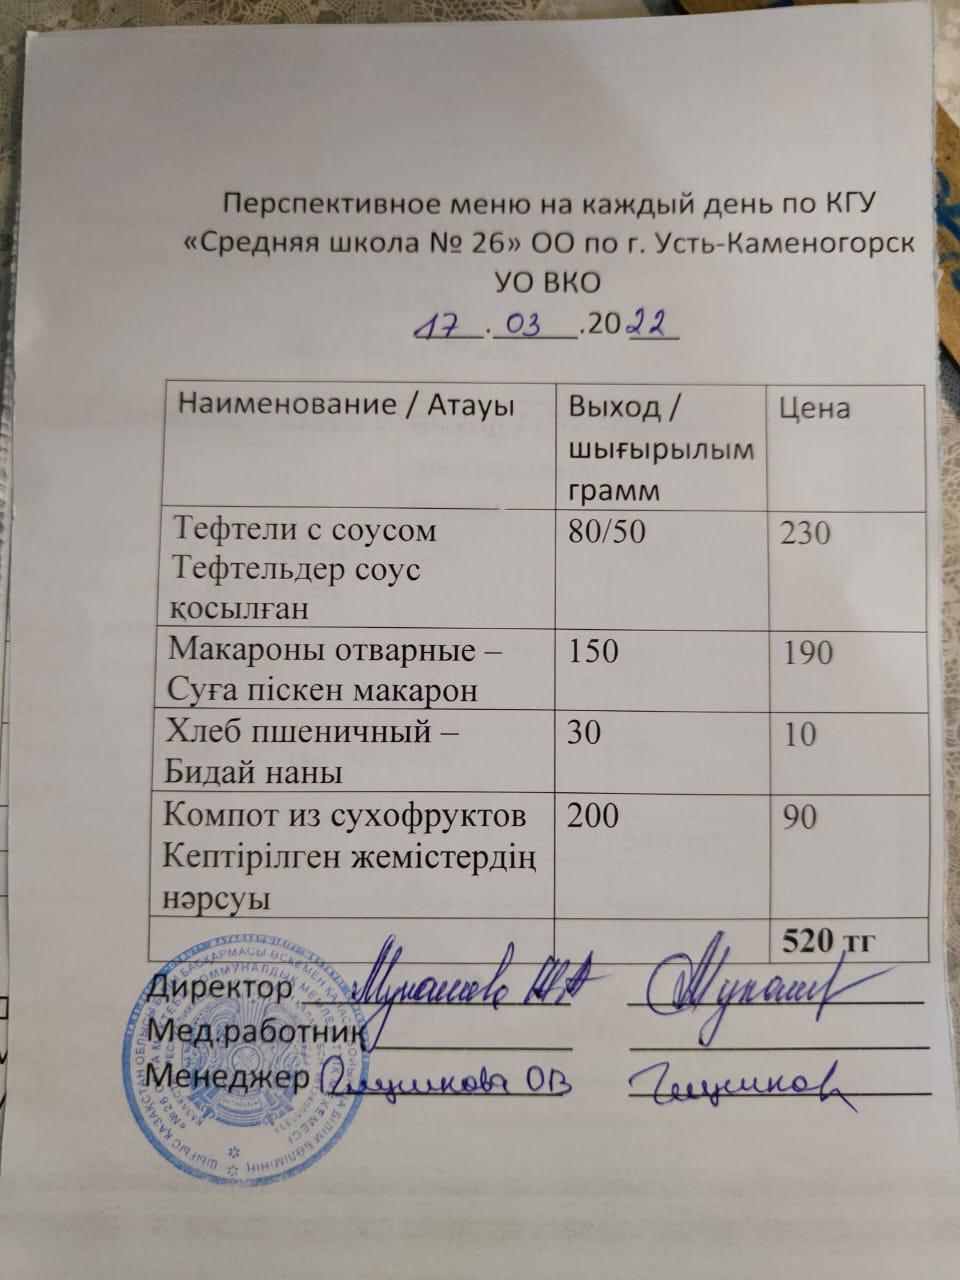 Перспективное меню на каждый день по КГУ
«Средняя школа № 26» ОО по г. Усть-Каменогорск
УО ВКО
17.03.2022
Наименование / Атауы
Выход /
шығырылым
грамм
Цена
Тефтели с соусом
Тефтельдер соус
қосылған
80/50
230
Макароны отварные –
Суға піскен макарон
150
190
Хлеб пшеничный –
Бидай наны
30
10
Компот из сухофруктов
Кептірілген жемістердің
нәрсуы
200
90
520 тг
Директор
Мед.работник
Менеджер